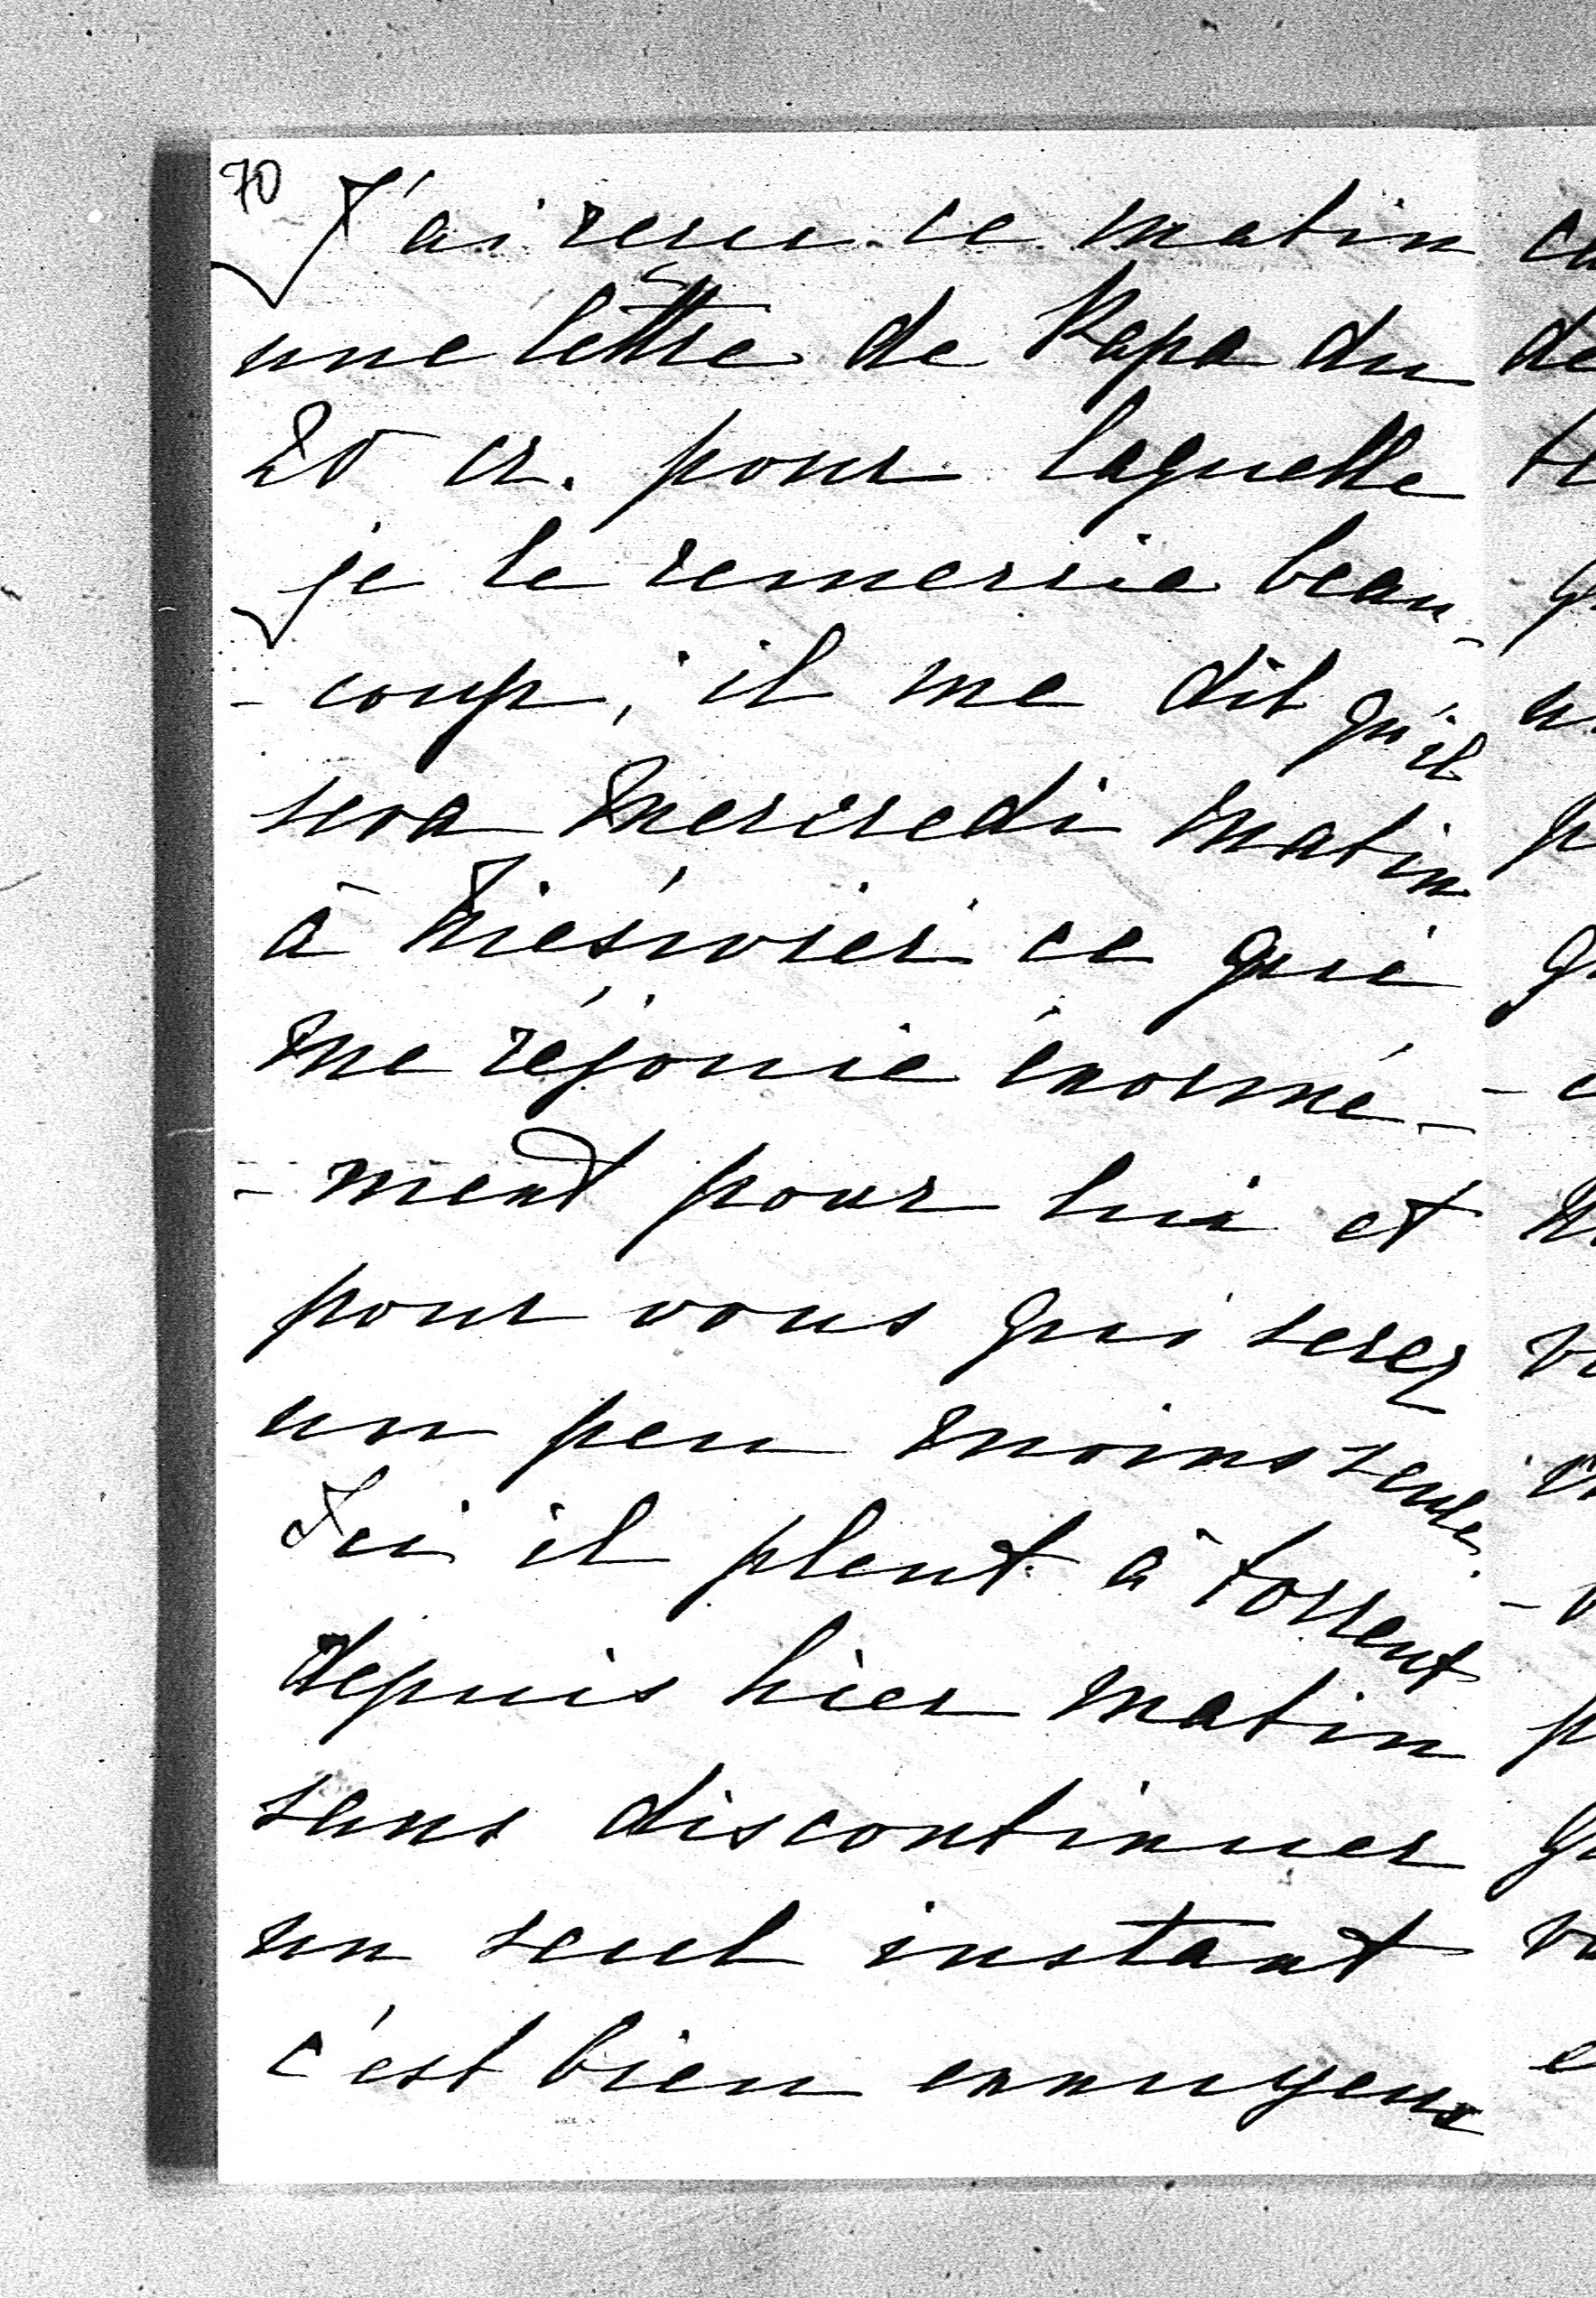 70
J'ai reçu ce matin
une lettre de Papa du
20 cr. pour laquelle
je le remercie beau-
- coup, il me dit qu'il
sera Mercredi matin
à ce qui
me réjouie énormé-
- ment pour lui et
pour vous qui serez
un peu moins seule.
Ici il pleut à torrent
depuis hier matin
sans discontinuer
un seul instant
c'est bien ennuyeux